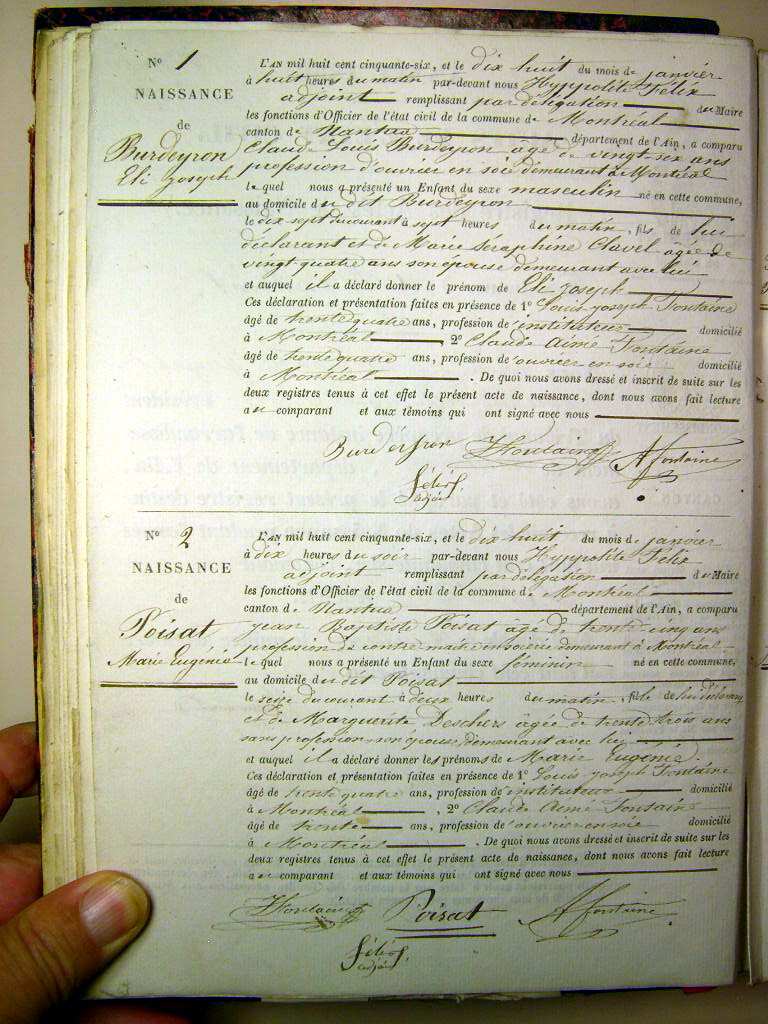 N° 1
NAISSANCE
de
Burdeyron
Eli Joseph
L'AN mil huit cent cinquante-six, et le dix huit du mois de janvier
à huit heures du matin par-devant nous Hyppolite Félix
adjoint remplissant par délégation du Maire
les fonctions d'Officier de l'état civil de la commune de Montréal
canton de Nantua département de l'Ain, a comparu
Claude Louis Burdeyron âgé de vingt-six ans
profession d'ouvrier en soie demeurant à Montréal
lequel nous a présenté un Enfant du sexe masculin né en cette commune,
au domicile du dit Burdeyron
le dix sept du courant à sept heures du matin, fils de lui
déclarant et de Marie Seraphine Clavel âgée de
vingt quatre ans son épouse demeurant avec lui
et auquel il a déclaré donner le prénom de Eli Joseph
Ces déclaration et présentation faites en présence de 1° Louis Joseph Fontaine
âgé de trente quatre ans, profession de instituteur domicilié
à Montréal, 2° Claude Aimé Fontaine
âgé de trente quatre ans, profession de ouvrier en soie domicilié
à Montréal. De quoi nous avons dressé et inscrit de suite sur les
deux registres tenus à cet effet le présent acte de naissance, dont nous avons fait lecture
au comparant et aux témoins qui ont signé avec nous
Burdeyron JFontaine Afontaine
Félix
adjoint
N° 2
NAISSANCE
de
Poisat
Marie Eugénie
L'AN mil huit cent cinquante-six, et le dix huit du mois de janvier
à dix heures du soir par-devant nous Hyppolite Félix
adjoint remplissant par délégation du Maire
les fonctions d'Officier de l'état civil de la commune de Montréal
canton de Nantua département de l'Ain, a comparu
Jean Baptiste Poisat âgé de trente cinq ans
profession de contre maitre en soierie demeurant à Montréal
lequel nous a présenté un Enfant du sexe féminin né en cette commune,
au domicile du dit Poisat
le seize du courant à deux heures du matin, fille de lui déclarant
et de Marguerite Deschers âgée de trente trois ans
sans profession son épouse demeurant avec lui
et auquel il a déclaré donner les prénoms de Marie Eugénie.
Ces déclaration et présentation faites en présence de 1° Louis Joseph Fontaine
âgé de trente quatre ans, profession de instituteur domicilié
à Montréal, 2° Claude Aimé Fontaine
âgé de trente ans, profession de ouvrier en soie domicilié
à Montréal. De quoi nous avons dressé et inscrit de suite sur les
deux registres tenus à cet effet le présent acte de naissance, dont nous avons fait lecture
au comparant et aux témoins qui ont signé avec nous
JFontaine Poisat Afontaine
Félix
adjoint